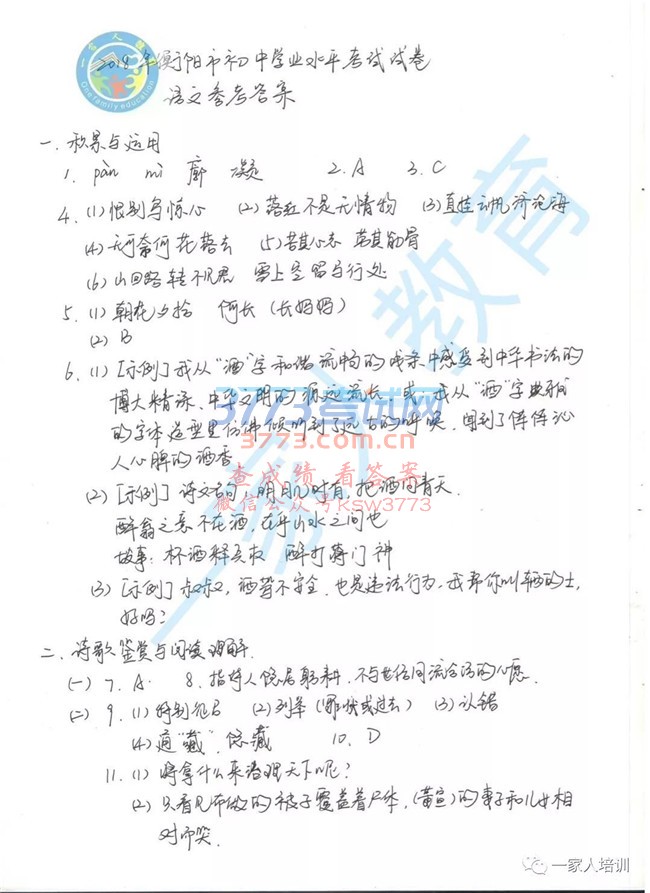 2018年衡阳市初中学业水平考试试卷
语文参考答案
一.积累与运用
1. pàn mì 廓 凝 2.A 3.C
4.(1)恨别鸟惊心 (2)落红不是无情物 (3)直挂云帆济沧海
(4)无可奈何花落去 (5)苦其心志 劳其筋骨
(6)山回路转不见君 雪上空留马行处
5.(1)朝花夕拾 阿长(长妈妈)
(2)B
6.(1)[示例]我从“酒”字和谐流畅的线条中感受到中华书法的
博大精深、中华文明的源远流长。或:我从“酒”字典雅
的字体造型里仿佛倾听到了远古的呼唤,闻到了阵阵沁
人心脾的酒香
(2)[示例]诗文名句:明月几时有,把酒问青天.
醉翁之意不在酒,在乎山水之间也
故事:杯酒释兵权 醉打蒋门神
(3)[示例]叔叔,酒驾不安全,也是违法行为,我帮你叫辆的士,
好吗?
二.诗歌鉴赏与阅读理解.
(一)7.A. 8.指诗人隐居躬耕,不与世俗同流合污的心愿.
(二)9.(1)特别 (2)到(那块或过去) (3)认错
(4)通“藏”,隐藏 10.D
11.(1)将拿什么来治理天下呢?
(2)只看见布做的被子覆盖着尸体,(黄宣)的妻子和儿女相
对而哭.
一家人教育
One family education
3773考试网
3773.com.cn
查成绩 看答案
微信公众号ksw3773
一家人培训